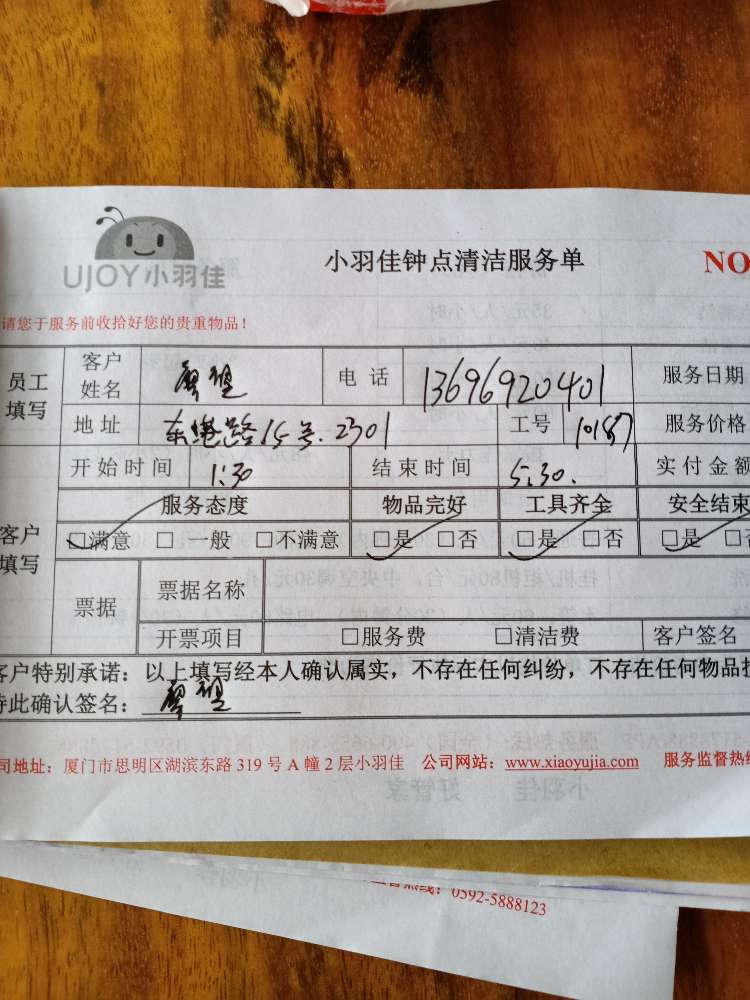 UJOY小羽佳
小羽佳钟点清洁服务单 NO
请您于服务前收拾好您的贵重物品！
员工填写 客户姓名 廖望 电话 13696920401 服务日期
地址 东港路15号.2301 工号 10187 服务价格
开始时间 1:30 结束时间 5:30. 实付金额
客户填写 服务态度 物品完好 工具齐全 安全结束
□满意 □一般 □不满意 □是 □否 □是 □否 □是 □
票据 票据名称
开票项目 □服务费 □清洁费 客户签名
客户特别承诺：以上填写经本人确认属实，不存在任何纠纷，不存在任何物品
此确认签名：廖望
司地址：厦门市思明区湖滨东路319号A幢2层小羽佳 公司网站：www.xiaoyujia.com 服务监督热线
热线：0592-5888123